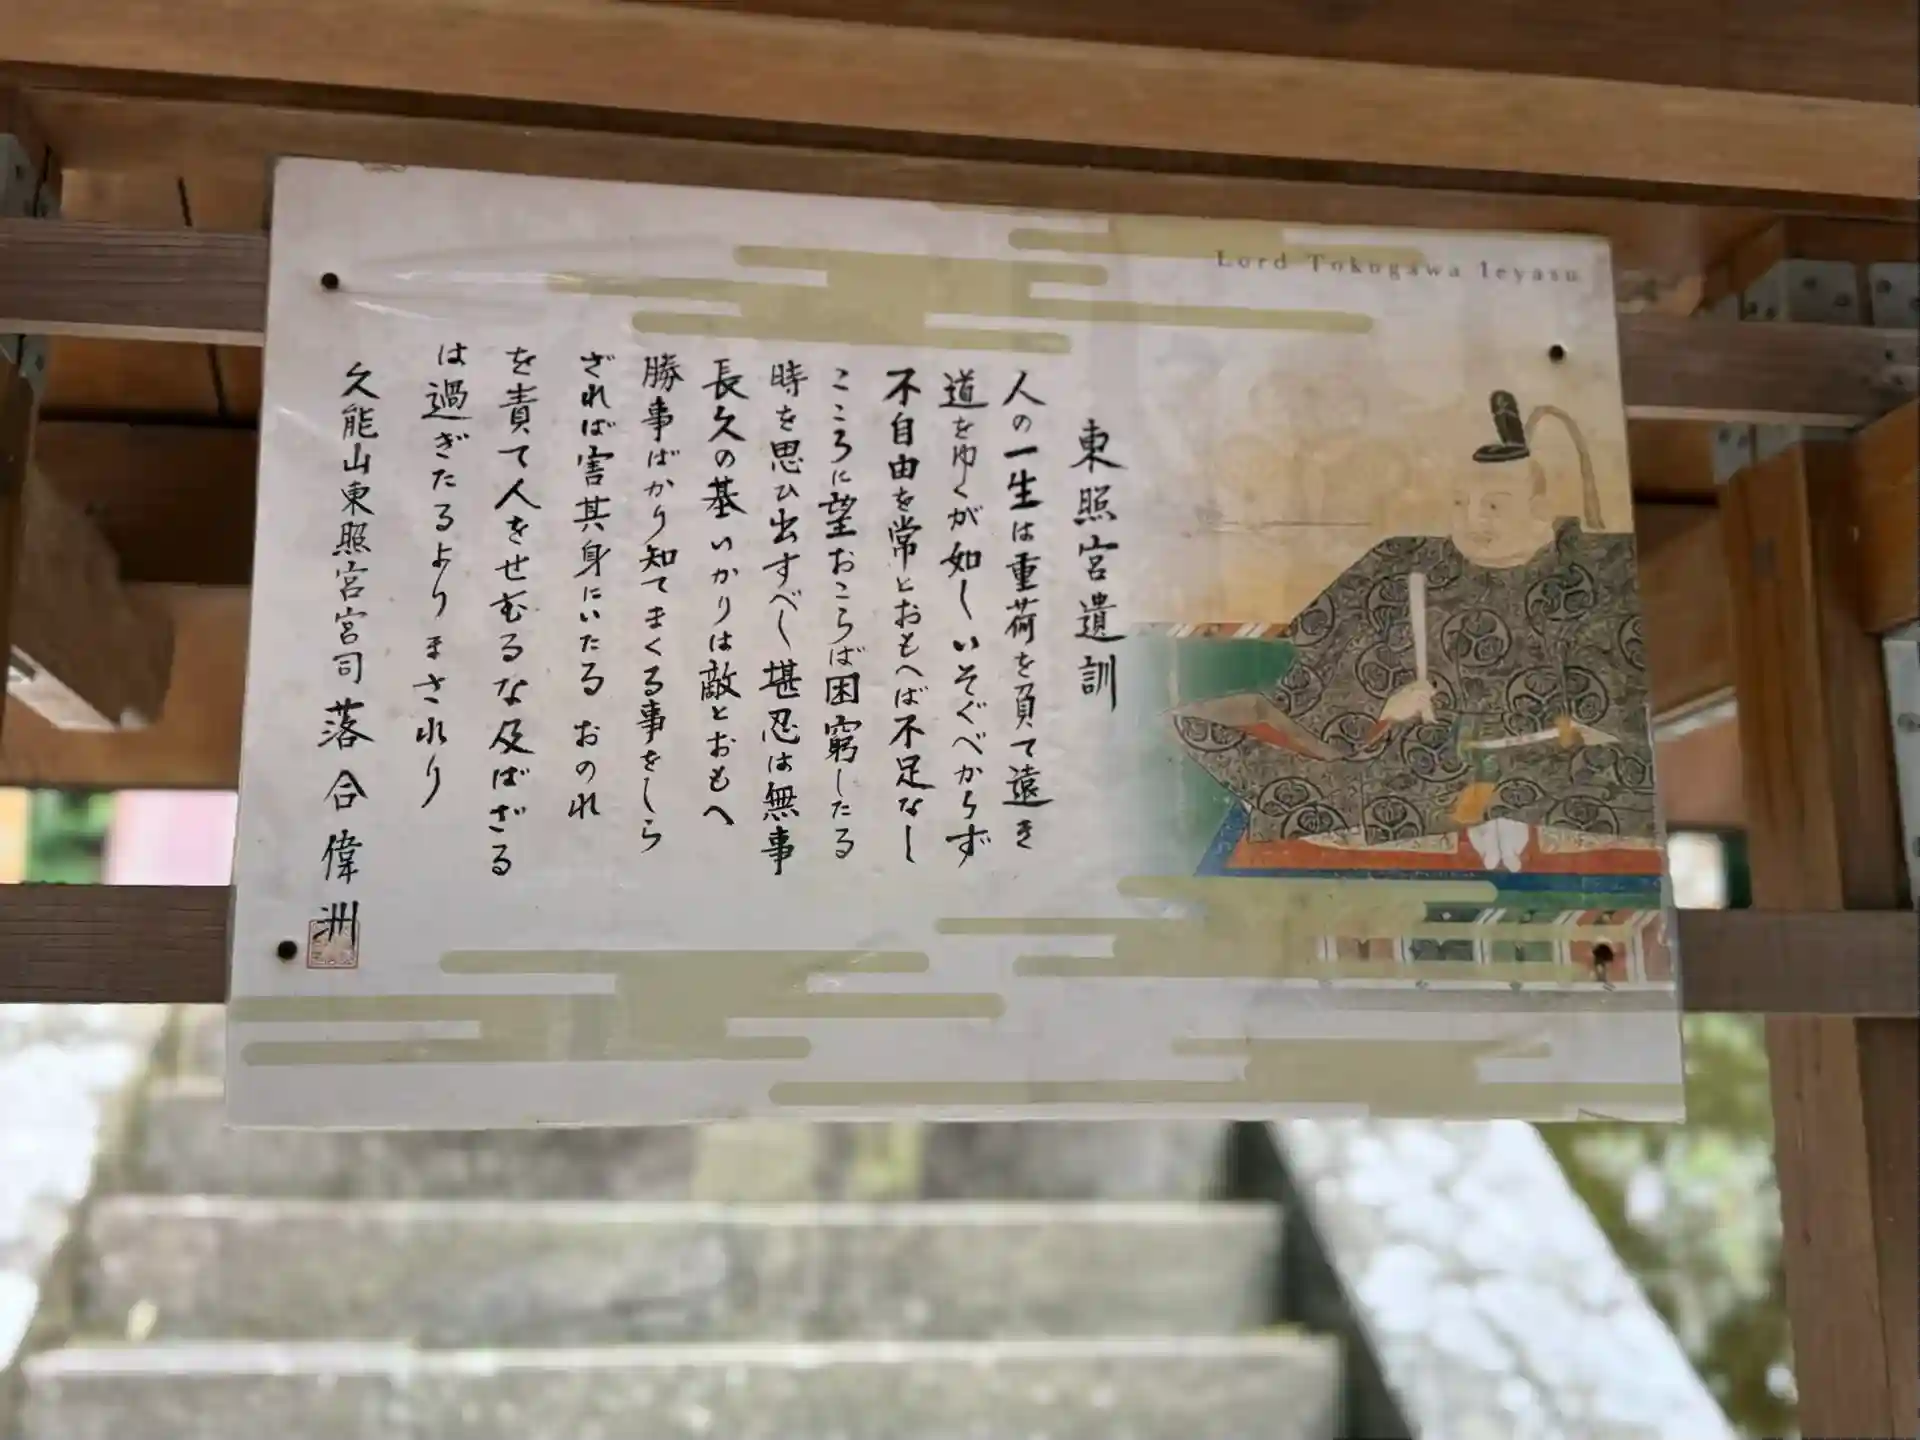 Lord Tokugawa Ieyasu
東照宮遺訓
人の一生は重荷を負て遠き
道をゆくが如しいそぐべからず
不自由を常とおもへば不足なし
こころに望おこらば困窮したる
時を思ひ出すべし堪忍は無事
長久の基いかりは敵とおもへ
勝事ばかり知てまくる事をしら
ざれば害其身にいたるおのれ
を責て人をせむるな及ばざる
は過ぎたるよりまされり
久能山東照宮宮司落合偉洲